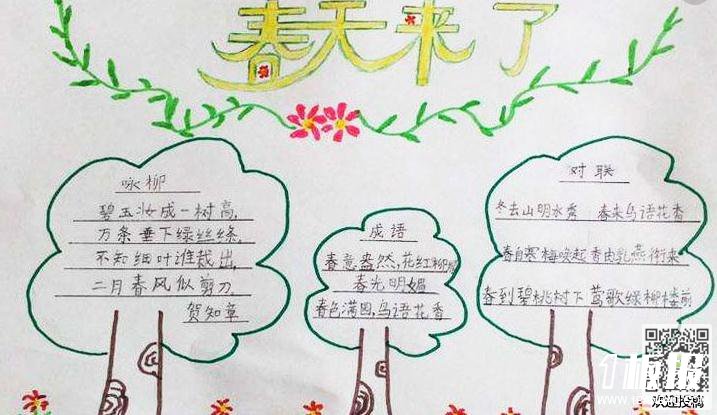 春天来了
咏柳
碧玉妆成一树高,
万条垂下绿丝绦,
不知细叶谁裁出,
二月春风似剪刀
贺知章
成语
春意盎然,花红柳
春光明媚
春色满园,鸟语花香
对联
冬去山明水秀 春来鸟语花香
春自寒梅唤起香由乳燕衔来
春到碧桃树下莺歌绿柳楼前
欢迎投稿